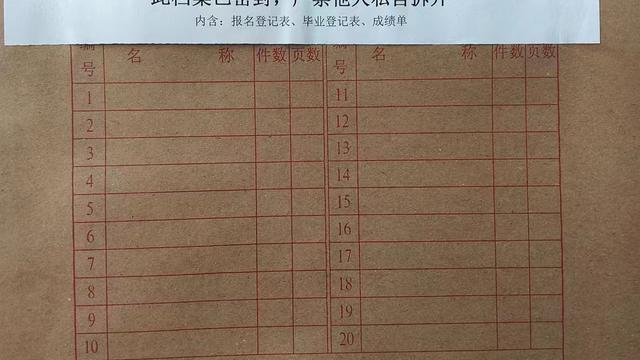 此档案已密封，严禁他人私自拆开
内含：报名登记表、毕业登记表、成绩单
编号 名 称 件数 页数 编号 名 称 件数 页数
1 11
2 12
3 13
4 14
5 15
6 16
7 17
8 18
9 19
10 20